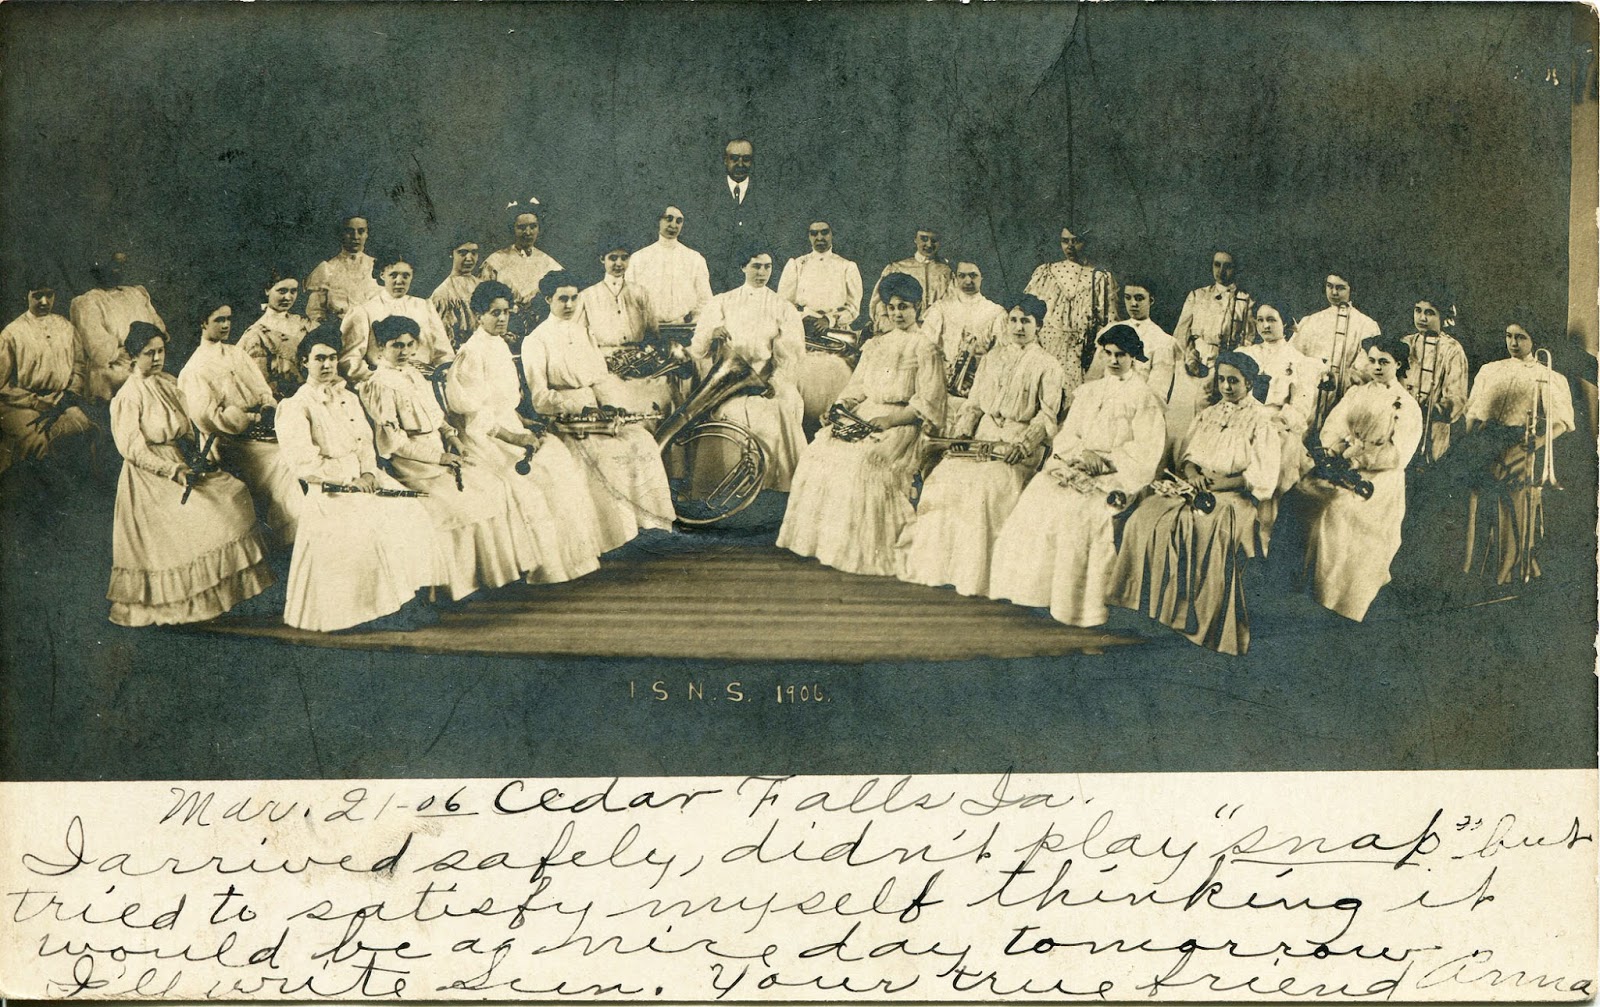 I S N. S. 1906.
Mar. 21-06 Cedar Falls Ia.
I arrived safely, didn't play "snap" but
tried to satisfy myself thinking it
would be a nice day tomorrow
I'll write Sun. Your true friend Anna